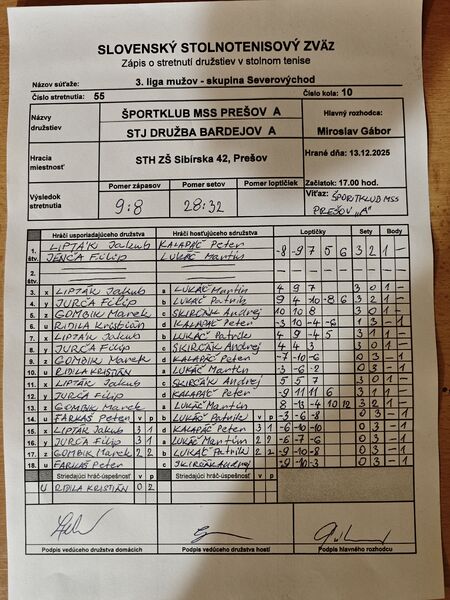 SLOVENSKÝ STOLNOTENISOVÝ ZVÄZ
Zápis o stretnutí družstiev v stolnom tenise
Názov súťaže: 3. liga mužov - skupina Severovýchod
Číslo stretnutia: 55 Číslo kola: 10
Názvy družstiev ŠPORTKLUB MSS PREŠOV A Hlavný rozhodca:
STJ DRUŽBA BARDEJOV A Miroslav Gábor
Hracia miestnosť STH ZŠ Sibírska 42, Prešov Hrané dňa: 13.12.2025
Pomer zápasov Pomer setov Pomer loptičiek Začiatok: 17.00 hod.
Výsledok stretnutia 9:8 28:32 Víťaz: ŠPORTKLUB MSS PREŠOV "A"
Hráči usporiadajúceho družstva Hráči hosťujúceho družstva Loptičky Sety Body
1. štv. LIPTÁK Jakub KALAPÁČ Peter -8 -9 7 5 6 3 2 1 -
JENČA Filip LUKÁČ Martin
2. štv.
3. x LIPTÁK Jakub a LUKÁČ Martin 4 9 7 3 0 1 -
4. y JURČA Filip b LUKÁČ Patrik 9 4 10 -8 6 3 2 1 -
5. z GOMBIK Marek c SKIRČAK Andrej 10 10 8 3 0 1 -
6. u RIDILA Kristián d KALAPÁČ Peter -3 10 -4 -6 1 3 - 1
7. x LIPTÁK Jakub b LUKÁČ Patrik 4 -9 -4 5
8. y JURČA Filip c SKIRČAK Andrej 4 4 3 3 0 1 -
9. z GOMBIK Marek d KALAPÁČ Peter -7 -10 -6 0 3 - 1
10. u RIDILA KRISTIÁN a LUKÁČ Martin -3 -6 -2 0 3 - 1
11. x LIPTÁK Jakub c SKIRČAK Andrej 5 5 7 3 0 1 -
12. y JURČA Filip d KALAPÁČ Peter -9 11 11 6 3 1 1 -
13. z GOMBIK Marek a LUKÁČ Martin 8 -13 -4 10 12 3 2 1 -
14. u FARKAŠ Peter v p b LUKÁČ Patrik v p -3 -6 -8 0 3 - 1
15. x LIPTÁK Jakub 3 1 d KALAPÁČ Peter 3 1 -6 -10 -8 0 3 - 1
16. y JURČA Filip 3 1 a LUKÁČ Martin 2 2 -6 -7 -6 0 3 - 1
17. z GOMBIK Marek 2 2 b LUKÁČ Patrik 2 2 -9 -10 -8 0 3 - 1
18. u FARKAŠ Peter c SKIRČAK Andrej -9 -10 -3 0 3 - 1
Striedajúci hráč-úspešnosť v p Striedajúci hráč-úspešnosť v p
u RIDILA KRISTIÁN 0 2
Podpis vedúceho družstva domácich Podpis vedúceho družstva hostí Podpis hlavného rozhodcu